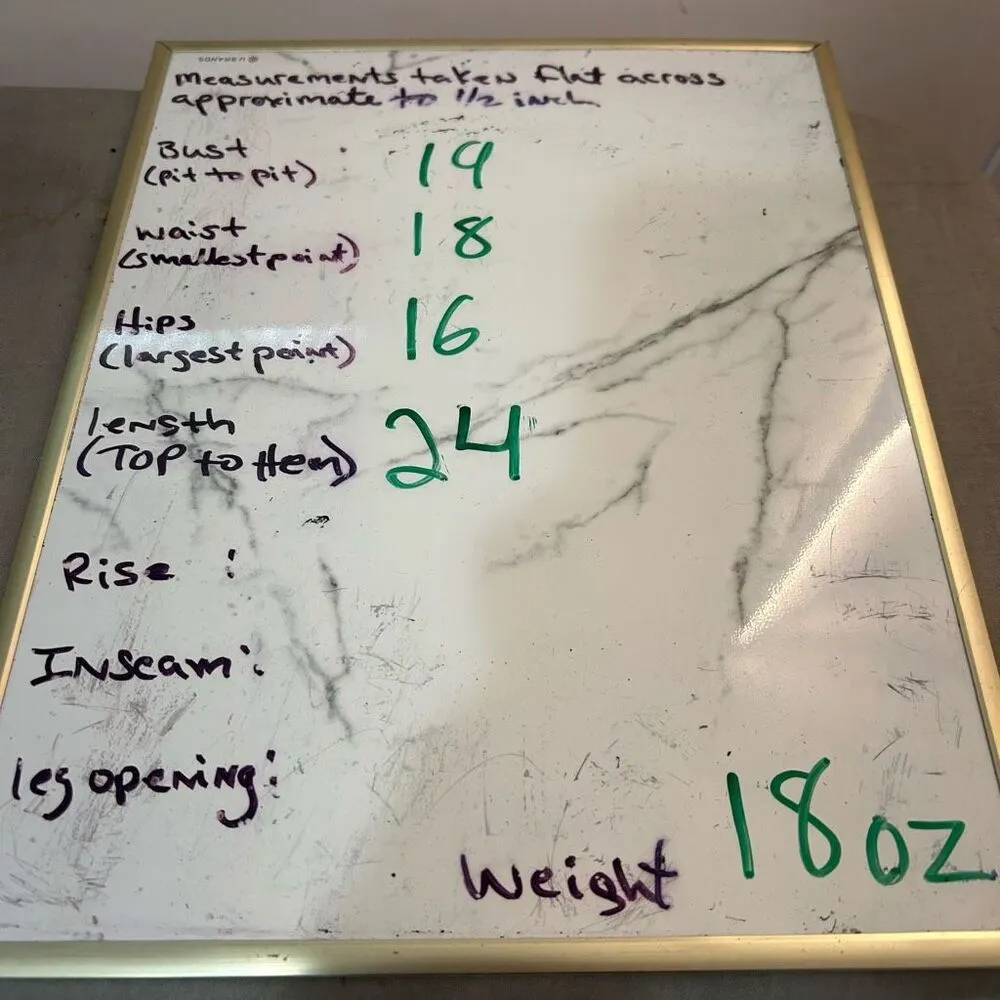 U BRANDS
Measurements taken flat across
approximate to 1/2 inch
Bust : 19
(pit to pit)
waist 18
(smallest point)
Hips 16
(largest point)
length 24
(TOP to Hem)
Rise :
Inseam :
leg opening :
Weight 18 oz